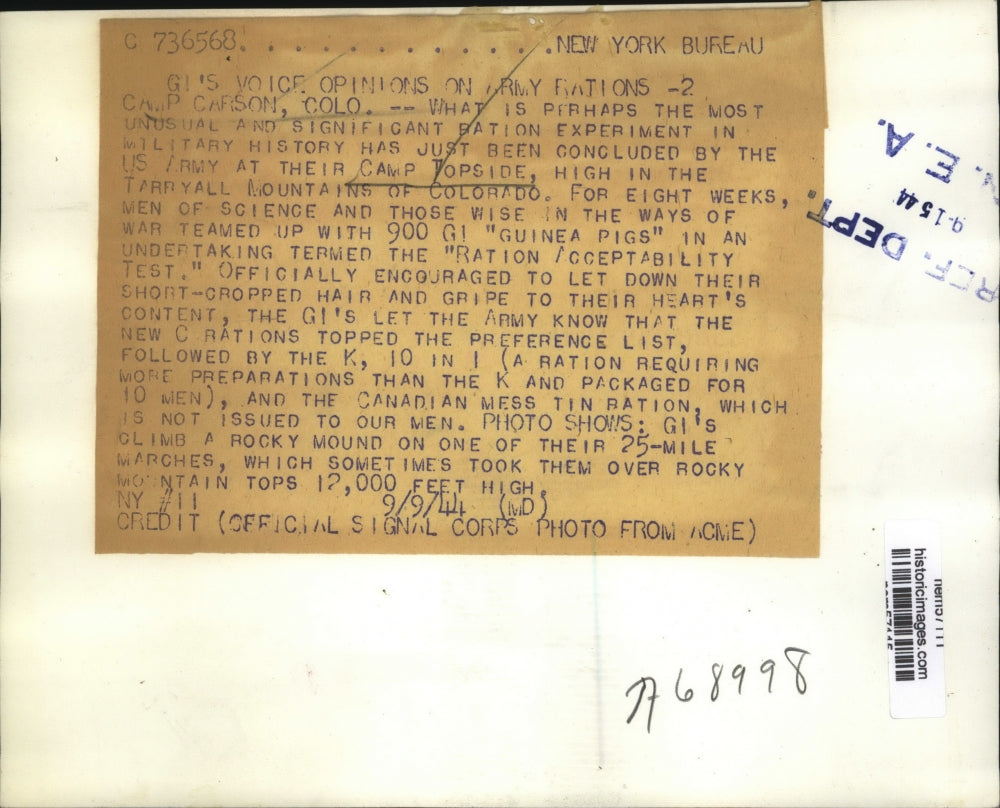 C 736568. . . . . . . . . . . . .NEW YORK BUREAU
GI'S VOICE OPINIONS ON ARMY RATIONS -2
CAMP CARSON, COLO. -- WHAT IS PERHAPS THE MOST
UNUSUAL AND SIGNIFICANT RATION EXPERIMENT IN
MILITARY HISTORY HAS JUST BEEN CONCLUDED BY THE
US ARMY AT THEIR CAMP TOPSIDE, HIGH IN THE
TARRYALL MOUNTAINS OF COLORADO. FOR EIGHT WEEKS,
MEN OF SCIENCE AND THOSE WISE IN THE WAYS OF
WAR TEAMED UP WITH 900 GI "GUINEA PIGS" IN AN
UNDERTAKING TERMED THE "RATION ACCEPTABILITY
TEST." OFFICIALLY ENCOURAGED TO LET DOWN THEIR
SHORT-CROPPED HAIR AND GRIPE TO THEIR HEART'S
CONTENT, THE GI'S LET THE ARMY KNOW THAT THE
NEW C RATIONS TOPPED THE PREFERENCE LIST,
FOLLOWED BY THE K, 10 IN 1 (A RATION REQUIRING
MORE PREPARATIONS THAN THE K AND PACKAGED FOR
10 MEN), AND THE CANADIAN MESS TIN RATION, WHICH
IS NOT ISSUED TO OUR MEN. PHOTO SHOWS: GI'S
CLIMB A ROCKY MOUND ON ONE OF THEIR 25-MILE
MARCHES, WHICH SOMETIMES TOOK THEM OVER ROCKY
MOUNTAIN TOPS 12,000 FEET HIGH.
NY #11 9/9/44 (MD)
CREDIT (OFFICIAL SIGNAL CORPS PHOTO FROM ACME)
REF. DEPT.
9-15 44
N. E. A.
historicimages.com
A68998